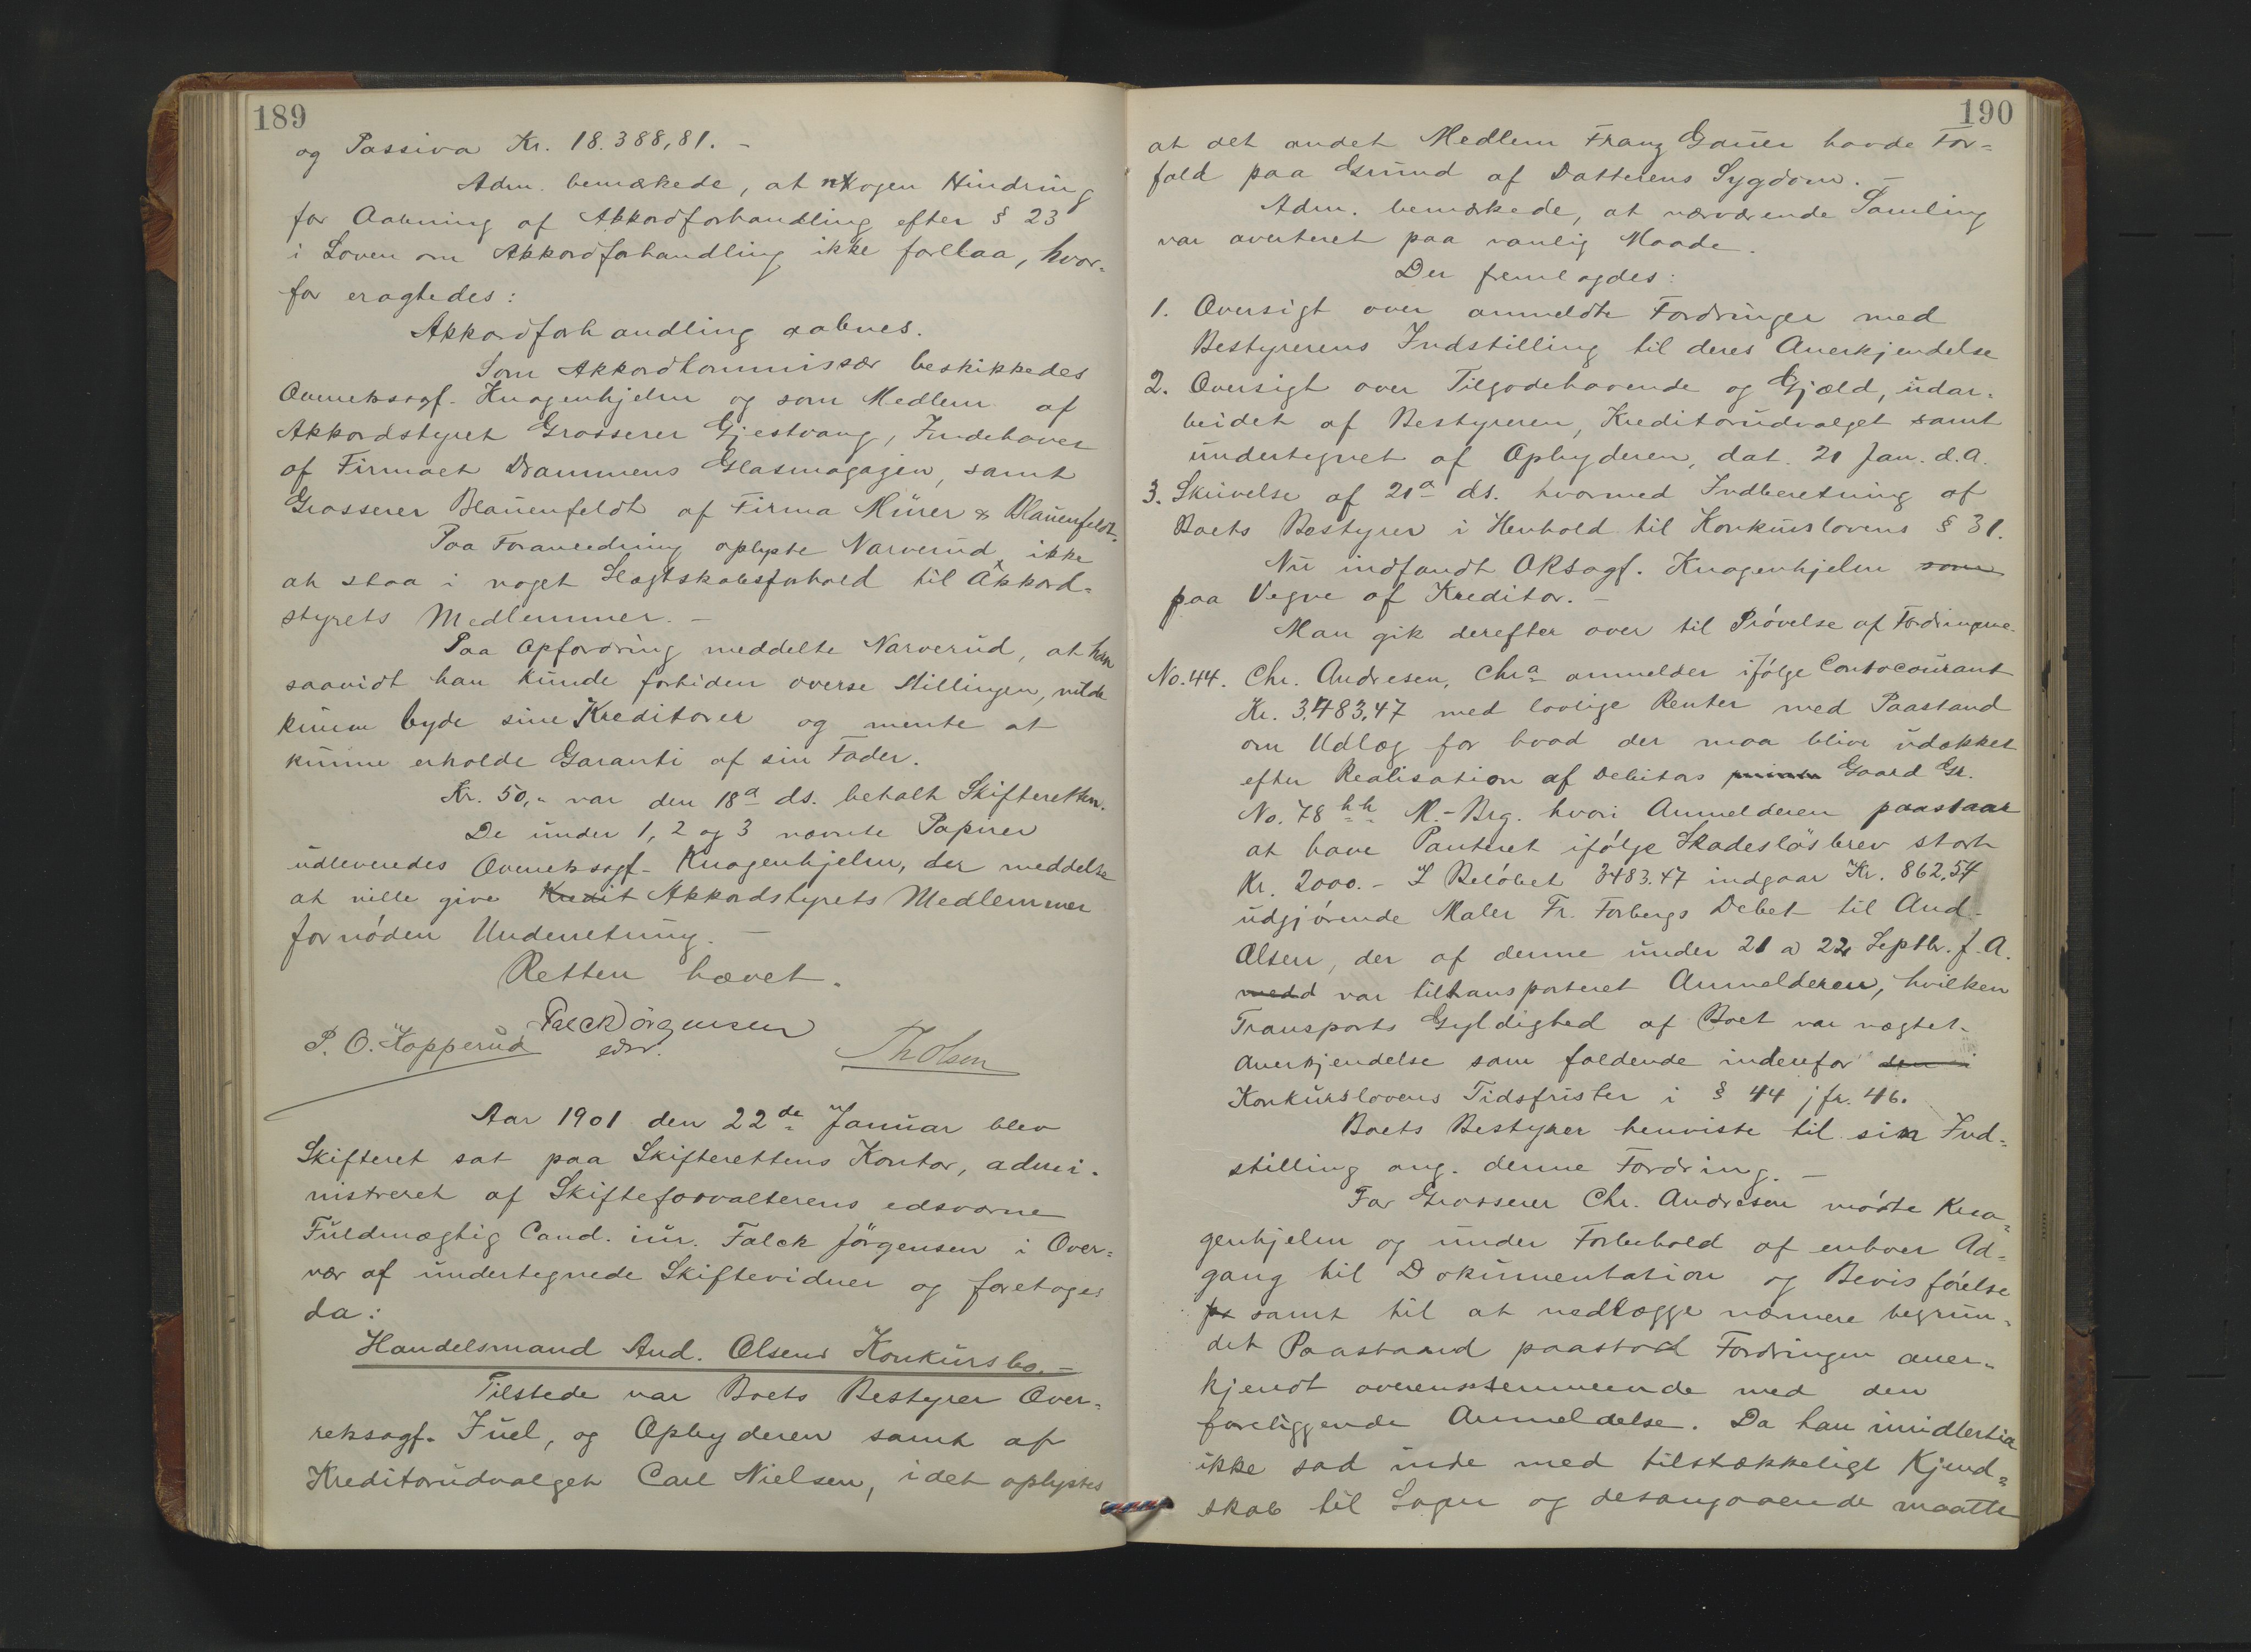 189
og Passiva Kr. 18.388,81. –
Adm. bemærkede, at nogen Hindring
for Aabning af Akkordforhandling efter § 23
i Loven om Akkordforhandling ikke forelaa, hvor-
for eragtedes:
Akkordforhandling aabnes.
Som Akkordkommissær beskikkedes
Overretssagf. Knagenhjelm og som Medlem af
Akkordstyret Grosserer Gjestvang, Indehaver
af Firmaet Drammens Glasmagazin, samt
Grosserer Blauenfeldt af Firma Mürer & Blauenfeldt.
Paa Foranledning oplyste Narverud ikke
at staa i noget Slægtskabsforhold til Akkord-
styrets Medlemmer. –
Paa Opfordring meddelte Narverud, at han
saavidt han kunde fortiden overse Stillingen, vilde
kunne byde sine Kreditorer og mente at
kunne erholde Garanti af sin Fader.
Kr. 50,- var den 18a ds. betalt Skifteretten.
De under 1, 2 og 3 nævnte Papirer
udleveredes Overretssagf. Knagenhjelm, der meddelte
at ville give Kredit Akkordstyrets Medlemmer
fornøden Underretning. –
Retten hævet.
Falck Jörgensen
edsv.
P. O. Kopperud
Th Olsen
Aar 1901 den 22de Januar blev
Skifteret sat paa Skifterettens Kontor, admi-
nistreret af Skifteforvalterens edsvorne
Fuldmægtig Cand. iur. Falck Jörgensen i Over-
vær af undertegnede Skiftevidner og foretoges
da:
Handelsmand And. Olsens Konkursbo. –
Tilstede var Boets Bestyrer Over-
retssagf. Juel, og Opbyderen samt af
Kreditorudvalget Carl Nielsen, idet oplystes
190
at det andet Medlem Franz Gauer havde For-
fald paa Grund af Datterens Sygdom. –
Adm. bemærkede, at nærværende Samling
var averteret paa vanlig Maade.
Der fremlagdes:
1. Oversigt over anmeldte Fordringer med
Bestyrerens Indstilling til deres Anerkjendelse
2. Oversigt over Tilgodehavende og Gjæld, udar-
beidet af Bestyreren, Kreditorudvalget samt
undertegnet af Opbyderen, dat. 21 Jan. d.A.
3. Skrivelse af 21a ds. hvormed Indberetning af
Boets Bestyrer i Henhold til Konkurslovens § 31.
Nu indfandt ORsagf. Knagenhjelm som
paa Vegne af Kreditor. –
Man gik derefter over til Prövelse af Fordringerne.
No. 44. Chr. Andresen, Chra anmelder ifölge Contocourant
Kr. 3,483,47 med lovlige Renter med Paastand
om Udlæg for hvad der maa blive udækket
efter Realisation af Debitors Gaard Gr.
No. 78 hh M.-Brg. hvori Anmelderen paastaar
at have Panteret ifölge Skadeslösbrev stort
Kr. 2000. – I Belöbet 3483.47 indgaar Kr. 862,54
udgjörende Maler Fr. Forbergs Debet til And.
Olsen, der af denne under 21 a 22 Septbr. f.A.
medd var tiltransporteret Anmelderen, hvilken
Transports Gyldighed af Boet var nægtet
Anerkjendelse som faldende indenfor den i
Konkurslovens Tidsfrister i § 44 jfr. 46.
Boets Bestyrer henviste til sin Ind-
stilling ang. denne Fordring. –
For Grosserer Chr. Andresen mödte Kna-
genhjelm og under Forbehold af enhver Ad-
gang til Dokumentation og Bevisförelse
samt til at nedlægge nærmere begrun-
det Paastand paastod Fordringen aner-
kjendt overensstemmende med den
foreliggende Anmeldelse. Da han imidlertid
ikke sad inde med tilstrækkeligt Kjend-
skab til Sagen og desangaaende maatte